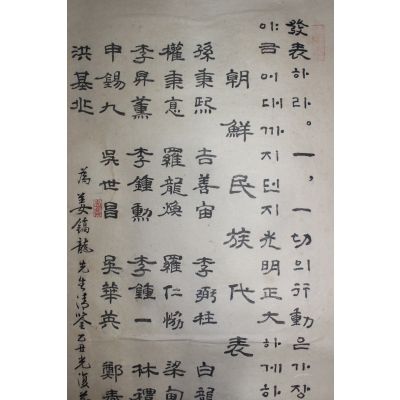 發表하라。一,一切의行動은가장
야금어대까지던지光明正大하게하
朝鮮民族代表
孫秉熙 吉善宙 李弼柱 白龍
權秉悳 羅龍煥 羅仁協 梁甸
李昇薰 李鍾勳 李鍾一 林禮
申錫九 吳世昌 吳華英 鄭春
洪基兆
為姜鎬龍先生清鑒乙丑光復